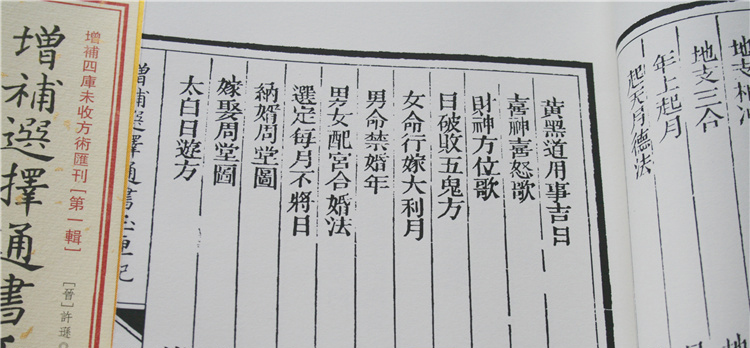 地支相冲
地支三合
年上起月
起天月德法
黄黑道用事吉日
喜神喜怒歌
財神方位歌
日破敗五鬼方
女命行嫁大利月
男命禁婚年
男女配宮合婚法
選定每月不將日
納婿周堂圖
嫁娶周堂圖
太白日遊方
增補選擇通書玉匣記
增補四庫未收方術匯刊［第一輯］
增補選擇通書
［晉］許遜